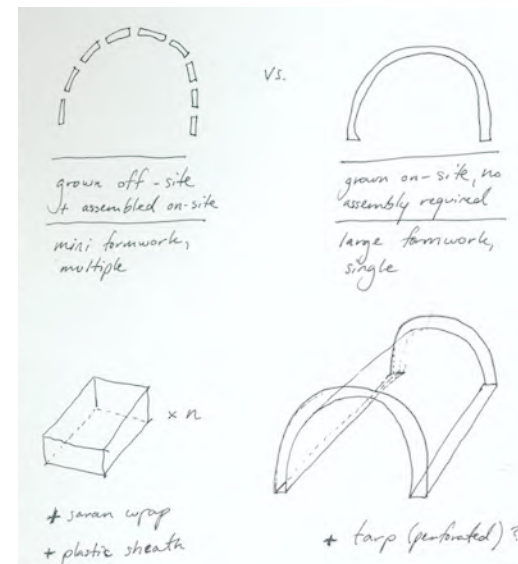 vs.
grown off-site
+ assembled on-site
mini formwork,
multiple
grown on-site, no
assembly required
large formwork,
single
x n
+ saran wrap
+ plastic sheath
+ tarp (perforated) ?